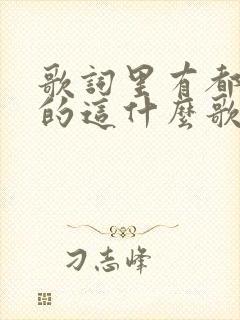 歌詞里有都
的這什麼歌
刁志峰